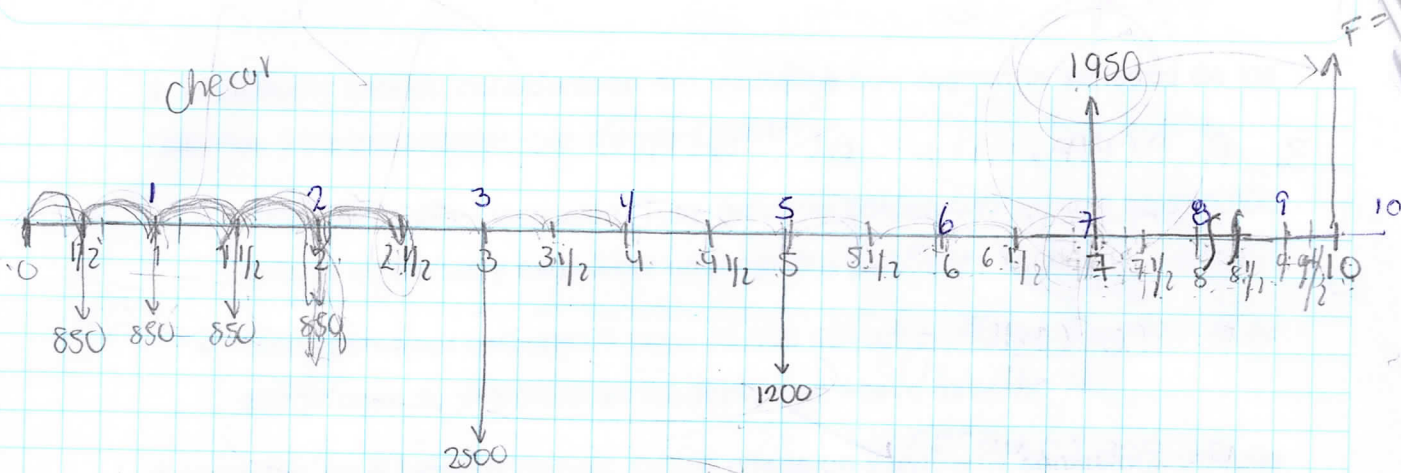 F =
1950
checar
1 2 3 4 5 6 7 8 9 10
0 1/2 1 1 1/2 2 2 1/2 3 3 1/2 4 4 1/2 5 5 1/2 6 6 1/2 7 7 1/2 8 8 1/2 9 9 1/2 10
850 850 850 850
1200
2500